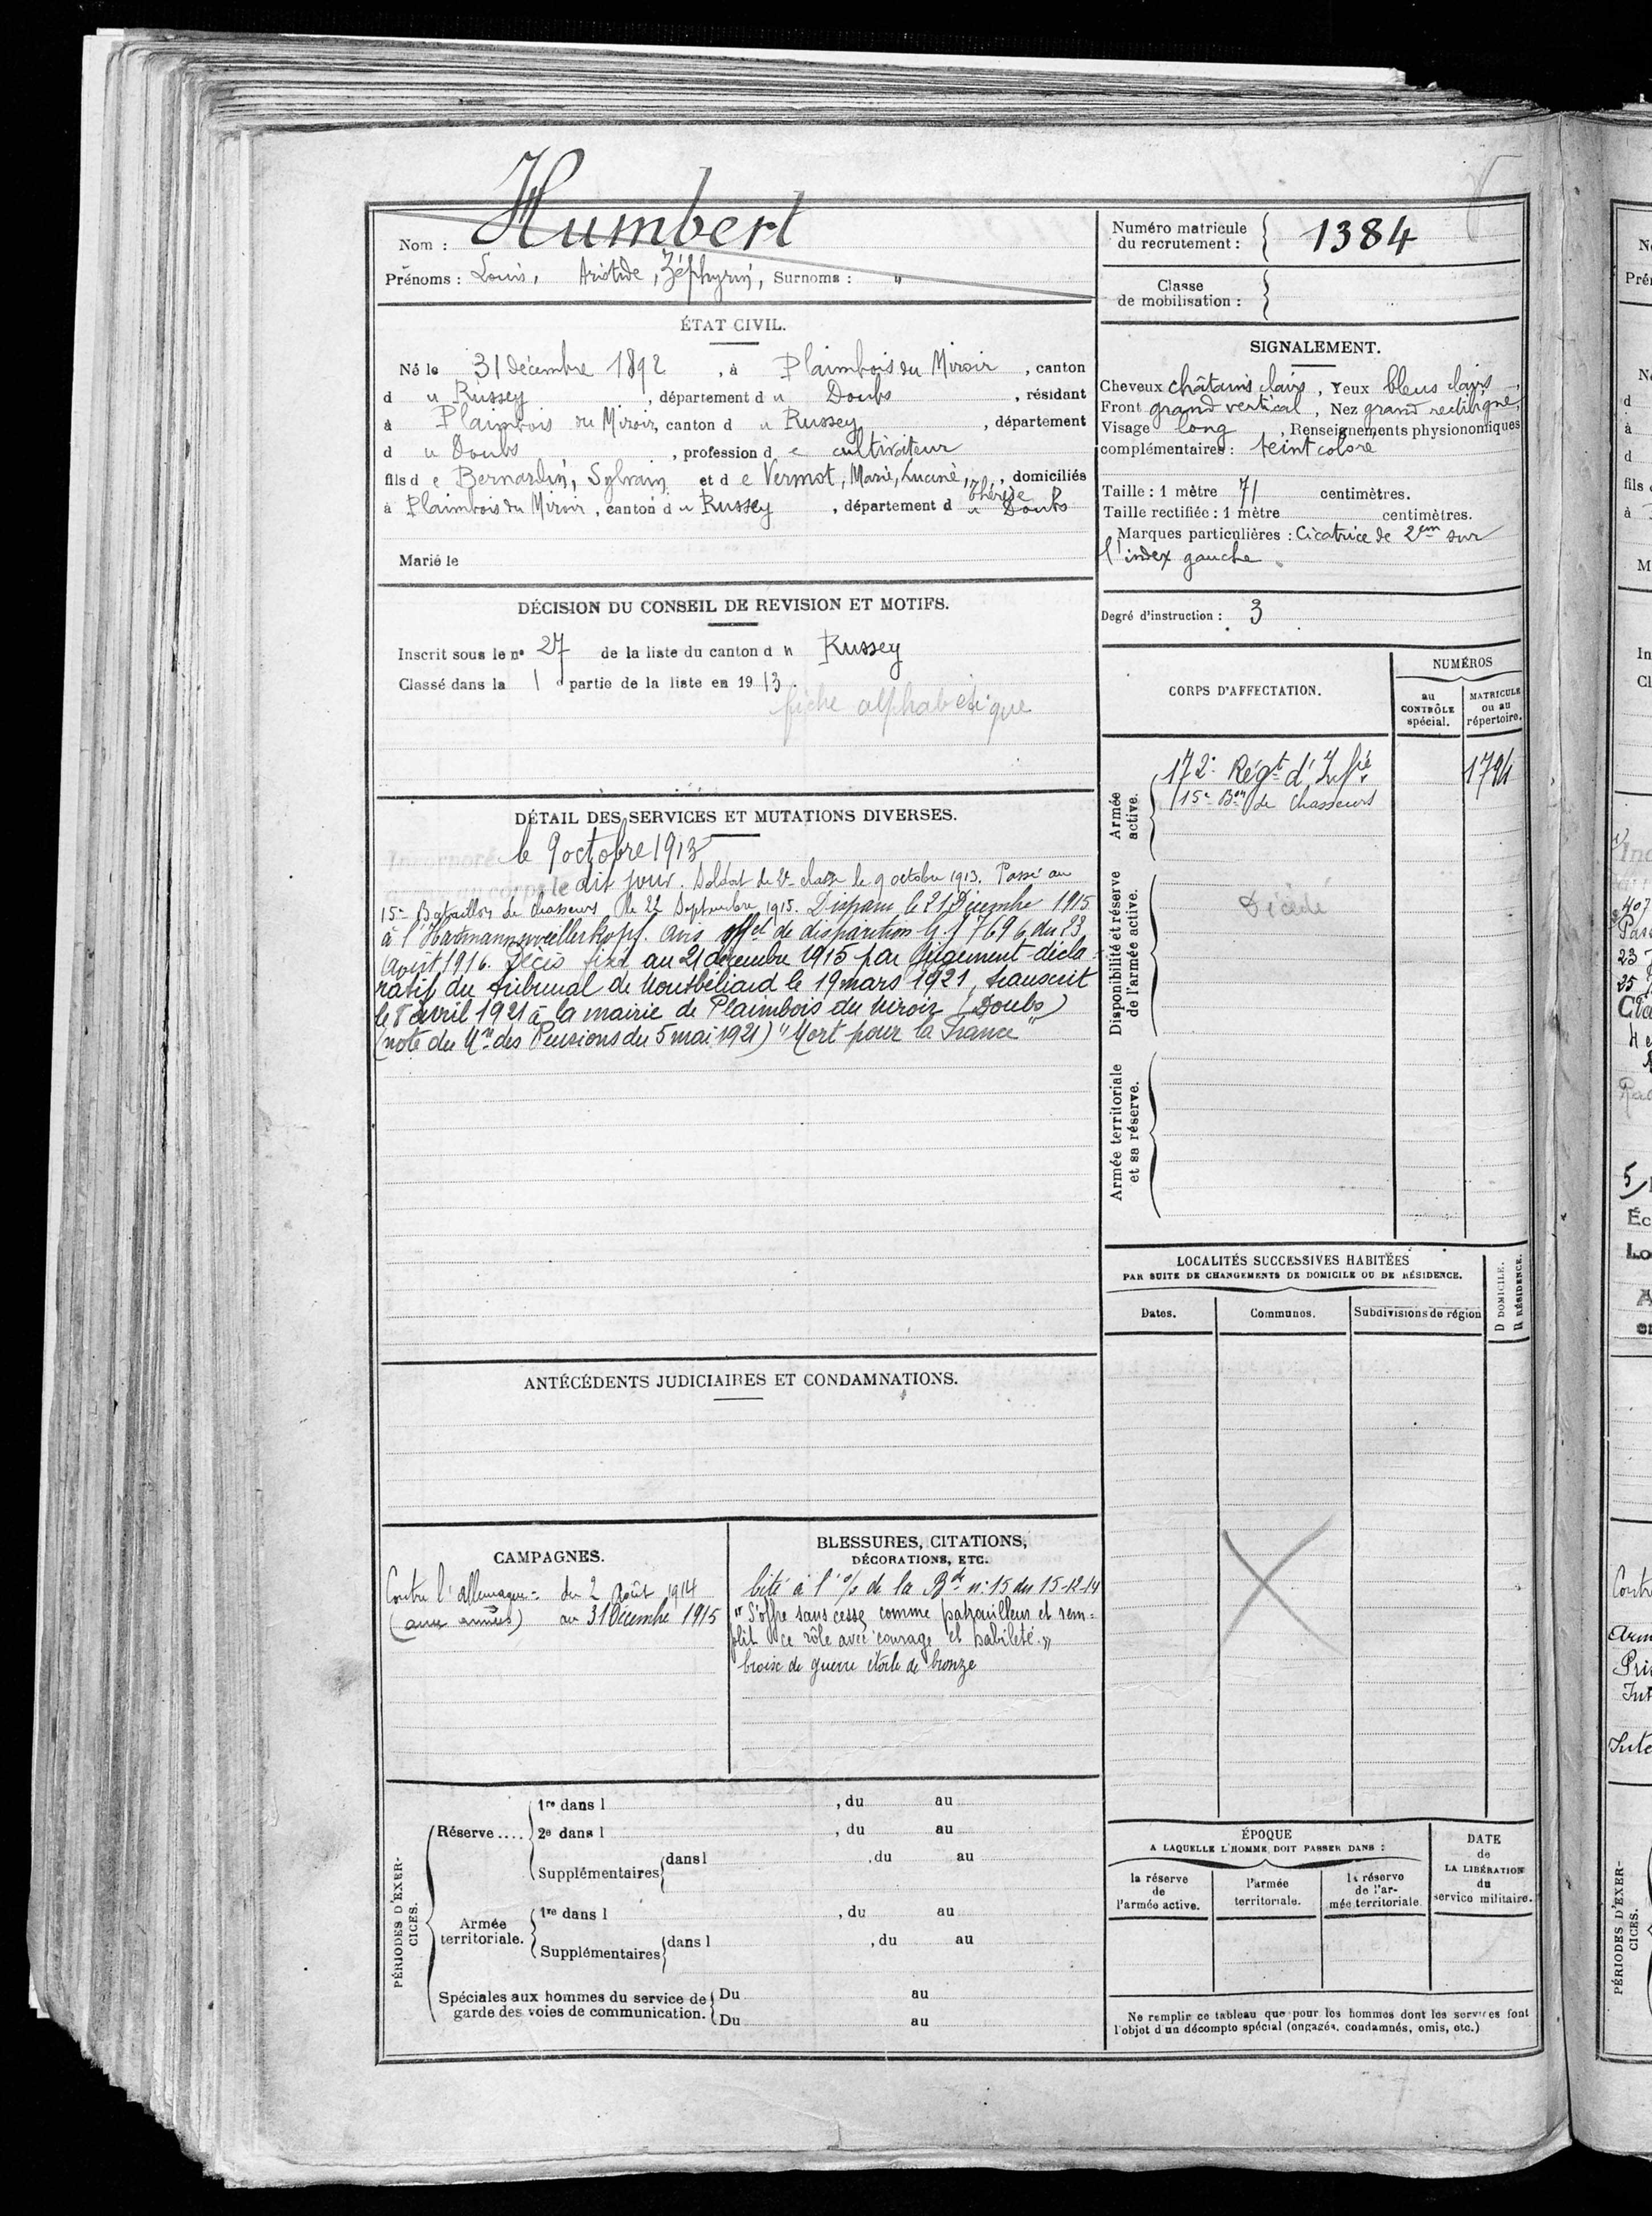 Nom : Humbert
Prénoms : Louis, Aristide, Zéphyrin, Surnoms : "
ÉTAT CIVIL.
Né le 31 décembre 1892, à Plaimbois du Miroir, canton
du Russey, département du Doubs, résidant
à Plaimbois du Miroir, canton du Russey, département
du Doubs, profession de cultivateur
fils de Bernardin, Sylvain et de Vermot, Marie, Lucine, Thérèse, domiciliés
à Plaimbois du Miroir, canton du Russey, département du Doubs
Marié le
DÉCISION DU CONSEIL DE REVISION ET MOTIFS.
Inscrit sous le nº 27 de la liste du canton du Russey
Classé dans la 1 partie de la liste en 1913.
fiche alphabétique
DÉTAIL DES SERVICES ET MUTATIONS DIVERSES.
Incorporé le 9 octobre 1913
au corps le dit jour. Soldat de 2e classe le 9 octobre 1913. Passé au
15e Bataillon de Chasseurs le 22 Septembre 1915. Disparu le 21 Décembre 1915
à l'Hartmannsweillerkopf. Avis offel de disparition 7696 du 23
Août 1916. Décès fixé au 21 décembre 1915 par jugement décla-
ratif du tribunal de Montbéliard le 19 mars 1921, transcrit
le 8 avril 1921 à la mairie de Plaimbois du Miroir (Doubs)
(note du Mre des Pensions du 5 mai 1921) "Mort pour la France"
ANTÉCÉDENTS JUDICIAIRES ET CONDAMNATIONS.
CAMPAGNES.
Contre l'Allemagne : du 2 Août 1914
(aux armées) au 31 Décembre 1915
BLESSURES, CITATIONS,
DÉCORATIONS, ETC.
Cité à l'o/ de la Bde nº 15 du 15-12-14
"S'offre sans cesse comme patrouilleur et rem-
plit ce rôle avec courage et habileté."
Croix de guerre étoile de bronze
PÉRIODES D'EXER-
CICES.
Réserve....
1re dans l , du au
2e dans l , du au
Supplémentaires dans l , du au
Armée
territoriale.
1re dans l , du au
Supplémentaires dans l , du au
Spéciales aux hommes du service de
garde des voies de communication.
Du au
Du au
Numéro matricule
du recrutement : 1384
Classe
de mobilisation :
SIGNALEMENT.
Cheveux châtains clairs, Yeux bleus clairs
Front grand vertical, Nez grand rectiligne,
Visage long, Renseignements physionomiques
complémentaires : teint coloré
Taille : 1 mètre 71 centimètres.
Taille rectifiée : 1 mètre centimètres.
Marques particulières : Cicatrice de 2cm sur
l'index gauche
Degré d'instruction : 3
CORPS D'AFFECTATION.
NUMÉROS
au
CONTRÔLE
spécial.
MATRICULE
ou au
répertoire.
Armée
active.
172e Régt d'Infie
15e Bon de Chasseurs
Disponibilité et réserve
de l'armée active.
Décédé
Armée territoriale
et sa réserve.
LOCALITÉS SUCCESSIVES HABITÉES
PAR SUITE DE CHANGEMENTS DE DOMICILE OU DE RÉSIDENCE.
Dates.
Communes.
Subdivisions de région
D DOMICILE.
R RÉSIDENCE.
ÉPOQUE
A LAQUELLE L'HOMME DOIT PASSER DANS :
la réserve
de
l'armée active.
l'armée
territoriale.
la réserve
de l'ar-
mée territoriale.
DATE
de
LA LIBÉRATION
du
service militaire.
Ne remplir ce tableau que pour les hommes dont les services font
l'objet d'un décompte spécial (engagés, condamnés, omis, etc.)